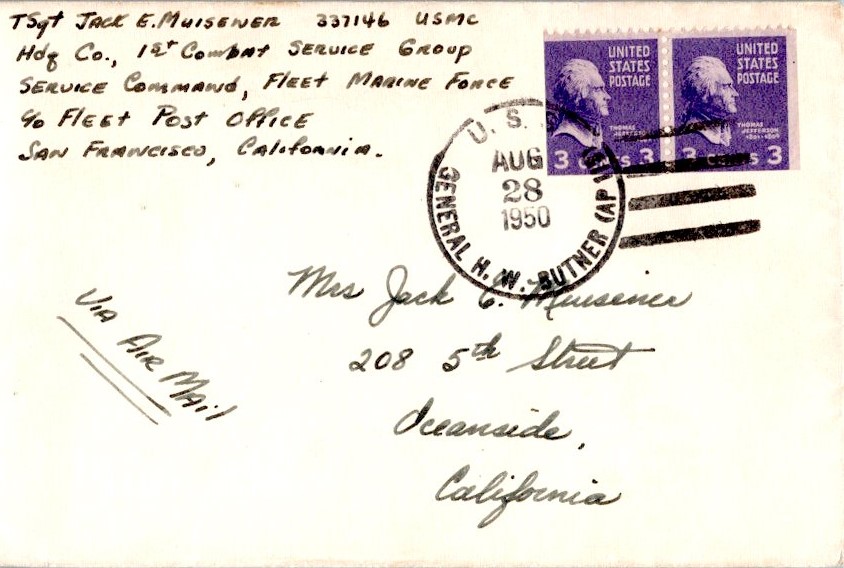 TSgt JACK E. MUISENER 337146 USMC
Hdq Co., 1st Combat SERVICE GROUP
SERVICE COMMAND, FLEET MARINE FORCE
c/o FLEET POST OFFICE
SAN FRANCISCO, CALIFORNIA.
UNITED
STATES
POSTAGE
THOMAS
JEFFERSON
3 3
UNITED
STATES
POSTAGE
THOMAS
JEFFERSON
1801-1809
3 CENTS 3
U. S. S.
GENERAL H. W. BUTNER (AP
AUG
28
1950
VIA AIR MAIL
Mrs Jack E. Muisener
208 5th Street
Oceanside,
California